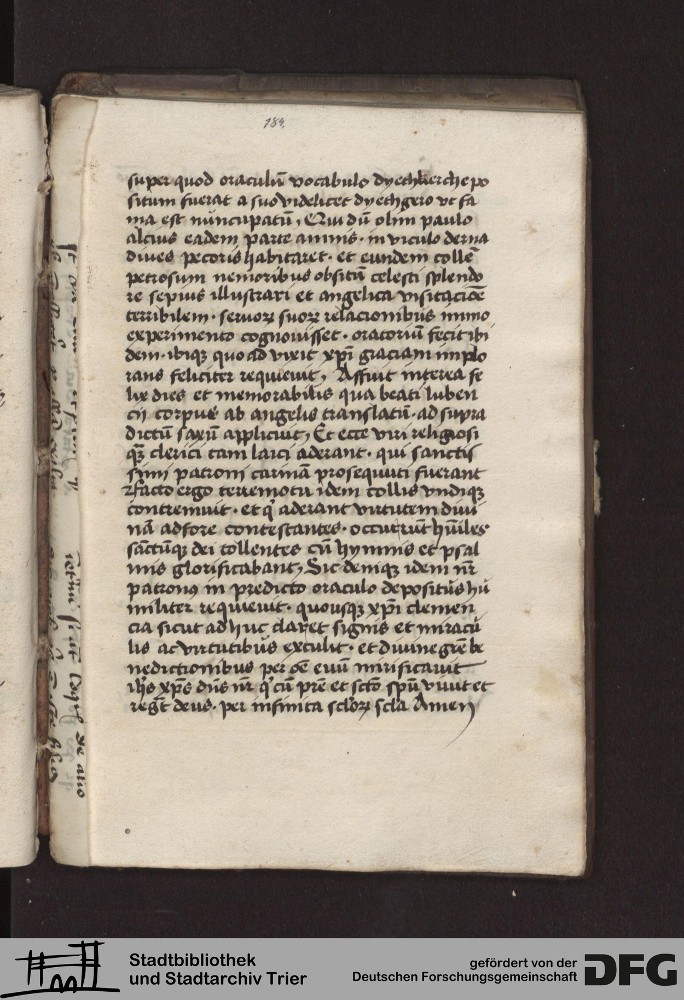 184.
super quod oraculū vocabulo dyechkerche po
situm fuerat a suo videlicet dyechgero vt fa
ma est nūncupatū, Qui dū olim paulo
alcius eadem parte amnis · in viculo derna
dives pecoris habitaret · et eundem collē
petrosum nemoribus obsitū celesti splendo
re sepius illustrari et angelica visitacioē
terribilem · servoꝝ suoꝝ relacionibus immo
experimento cognouisset · oratoriū fecit ibi
dem · ibiqꝫ quo ad vixit xp̄i graciam implo
rans feliciter requieuit, Affuit interea fe
lix dies et memorabilis qua beati luben
cii corpus ab angelis translatū · ad supra
dictū saxū applicuit, Et ecce viri religiosi
qꝫ clerici tam laici aderant · qui sanctis
simi patroni carinam prosequuti fuerant
facto ergo terremotu idem collis vndiqꝫ
contremuit · et q' aderant virtutem diui
nā adfore contestantes · occurrūt hūiles
sāctūqꝫ dei tollentes cū hymnis et psal
mis glorificabant, Sic deniqꝫ idem nr̄
patronꝰ in predicto oraculo depositus hu
militer requieuit · quousqꝫ xp̄i clemen
cia sicut adhuc claret signis et miracu
lis ac virtutibus excoluit · et diuine grē be
nedictionibus per oē euū mirificauit
ih̄s xp̄s dn̄s nr̄ q' cū prē et scto sp̄u viuit et
regt̄ deus · per infinita scl̄oꝝ scl̄a Amen
Stadtbibliothek
und Stadtarchiv Trier
gefördert von der
Deutschen Forschungsgemeinschaft
DFG